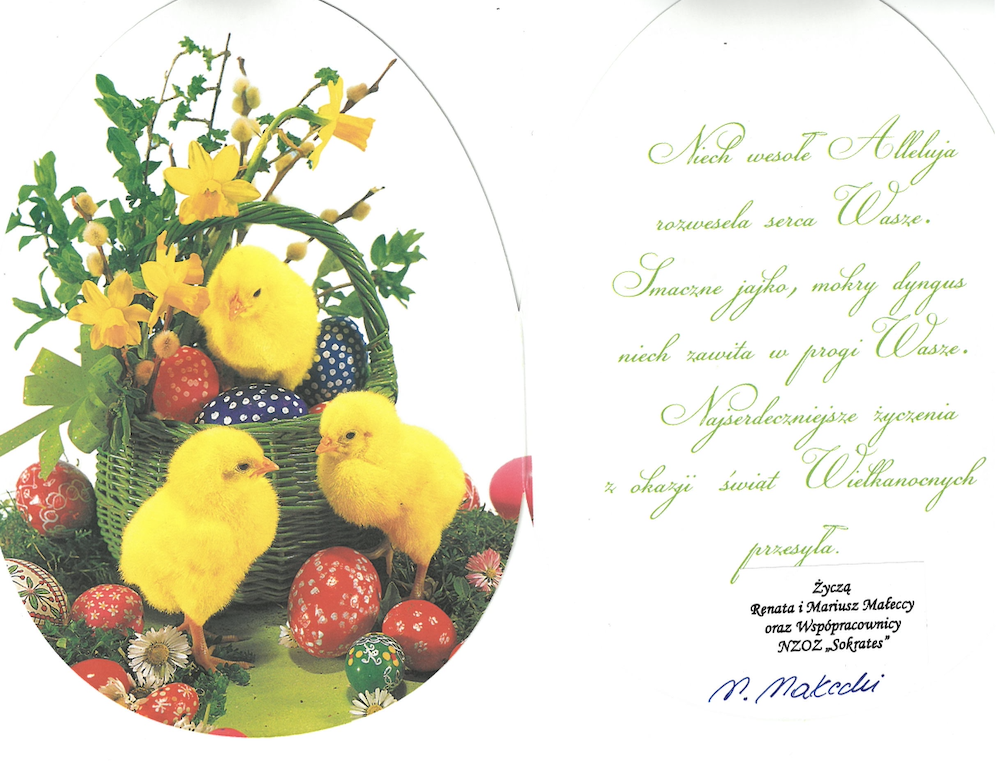 Niech wesołe Alleluja
rozwesela serca Wasze.
Smaczne jajko, mokry dyngus
niech zawita w progi Wasze.
Najserdeczniejsze życzenia
z okazji świąt Wielkanocnych
przesyła.
Życzą
Renata i Mariusz Małeccy
oraz Wspópracownicy
NZOZ „Sokrates”
M. Małecki